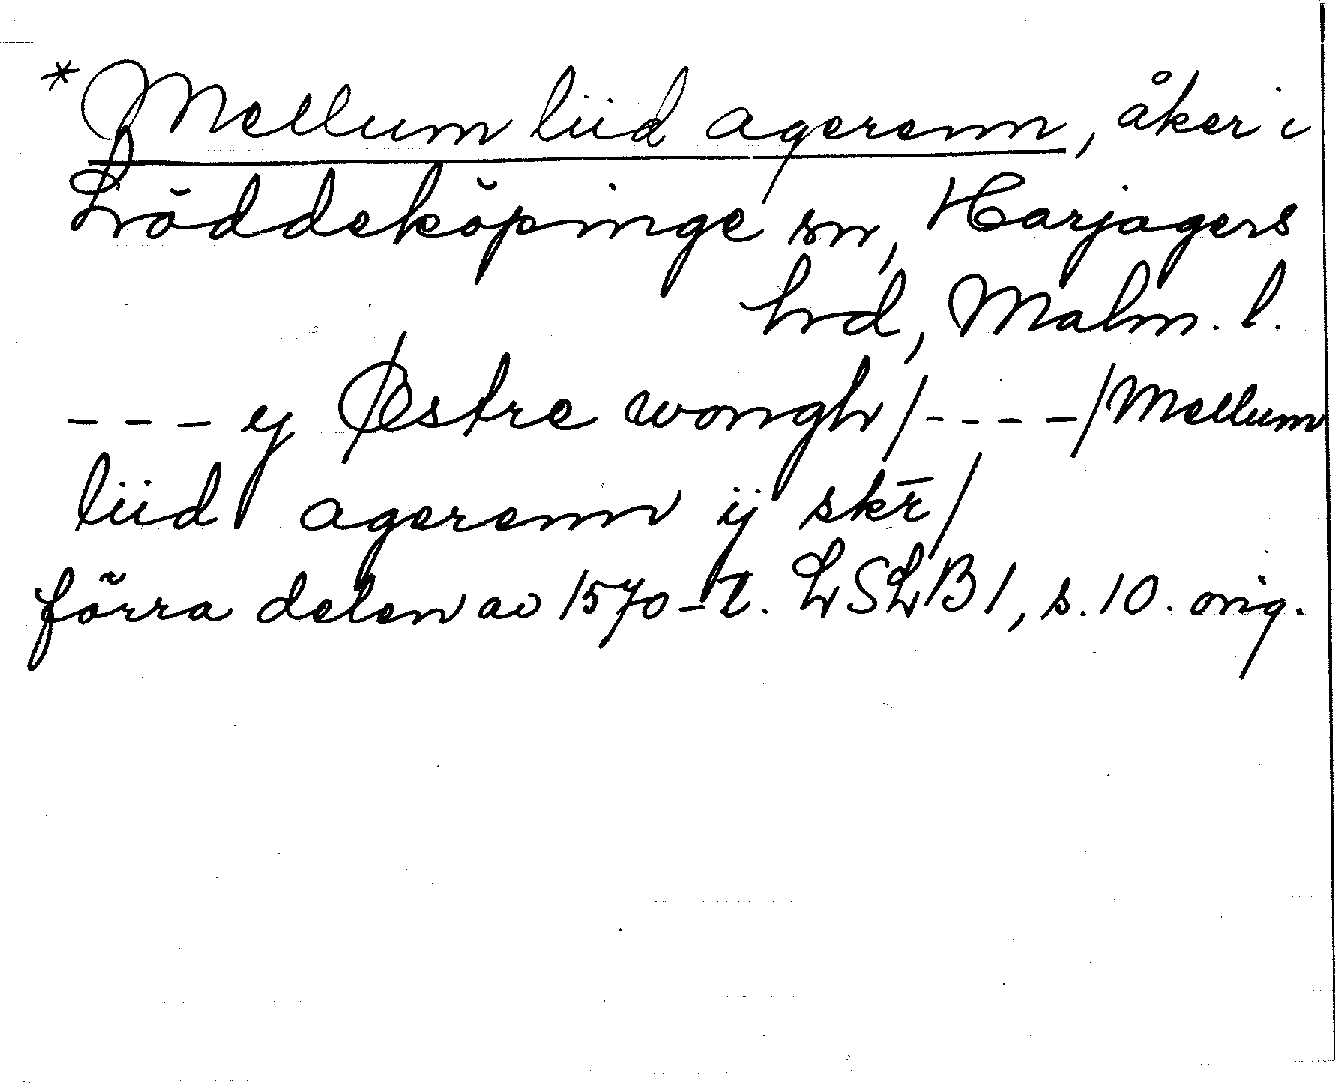 *Mellum liid agerenn, åker i
Löddeköpinge sn, Harjagers
hrd, Malm. l.
--- y Østre wongh/----/Mellum
liid agerenn ij skr̄/
förra delen av 1570-t. LSLB1, s. 10. orig.